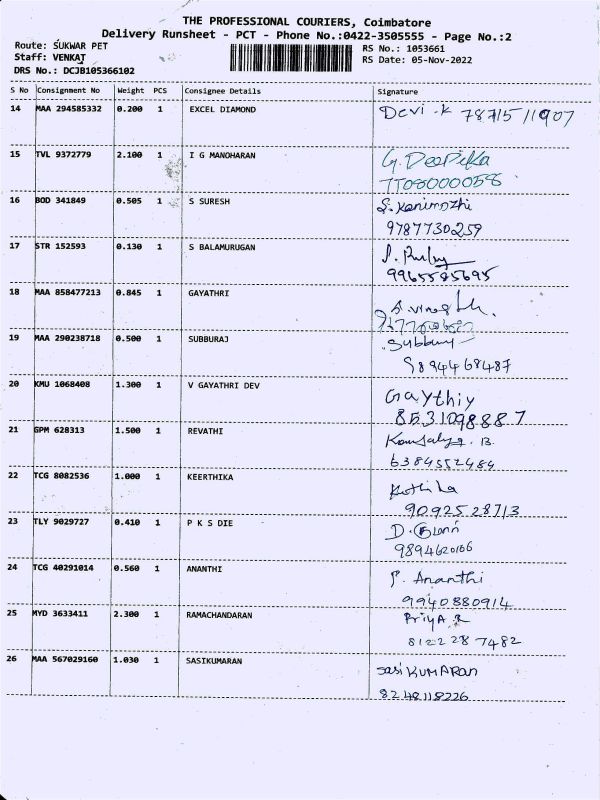 THE PROFESSIONAL COURIERS, Coimbatore
Delivery Runsheet - PCT - Phone No.:0422-3505555 - Page No.:2
Route: SUKWAR PET
RS No.: 1053661
Staff: VENKAT
RS Date: 05-Nov-2022
DRS No.: DCJB105366102
S No Consignment No Weight PCS Consignee Details Signature
14 MAA 294585332 0.200 1 EXCEL DIAMOND Devi .K 78715 11907
15 TVL 9372779 2.100 1 I G MANOHARAN G. Deepika
16 BOD 341849 0.505 1 S SURESH S. Kanimozhi
9787730259
17 STR 152593 0.130 1 S BALAMURUGAN
9965585695
18 MAA 858477213 0.845 1 GAYATHRI
19 MAA 290238718 0.500 1 SUBBURAJ
9894468487
20 KMU 1068408 1.300 1 V GAYATHRI DEV Gaythiy
8531098887
21 GPM 628313 1.500 1 REVATHI
6384552484
22 TCG 8082536 1.000 1 KEERTHIKA
9092528713
23 TLY 9029727 0.410 1 P K S DIE D.
9894620166
24 TCG 40291014 0.560 1 ANANTHI P. Ananthi
9940880914
25 MYD 3633411 2.300 1 RAMACHANDARAN PriyA R
8122287482
26 MAA 567029160 1.030 1 SASIKUMARAN Sasi KUMARAN
8248118226